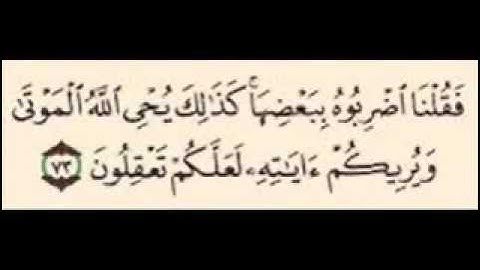 فَقُلْنَا ٱضْرِبُوهُ بِبَعْضِهَاۚ كَذَٰلِكَ يُحْىِ ٱللَّهُ ٱلْمَوْتَىٰ
وَيُرِيكُمْ ءَايَٰتِهِۦ لَعَلَّكُمْ تَعْقِلُونَ ٧٣